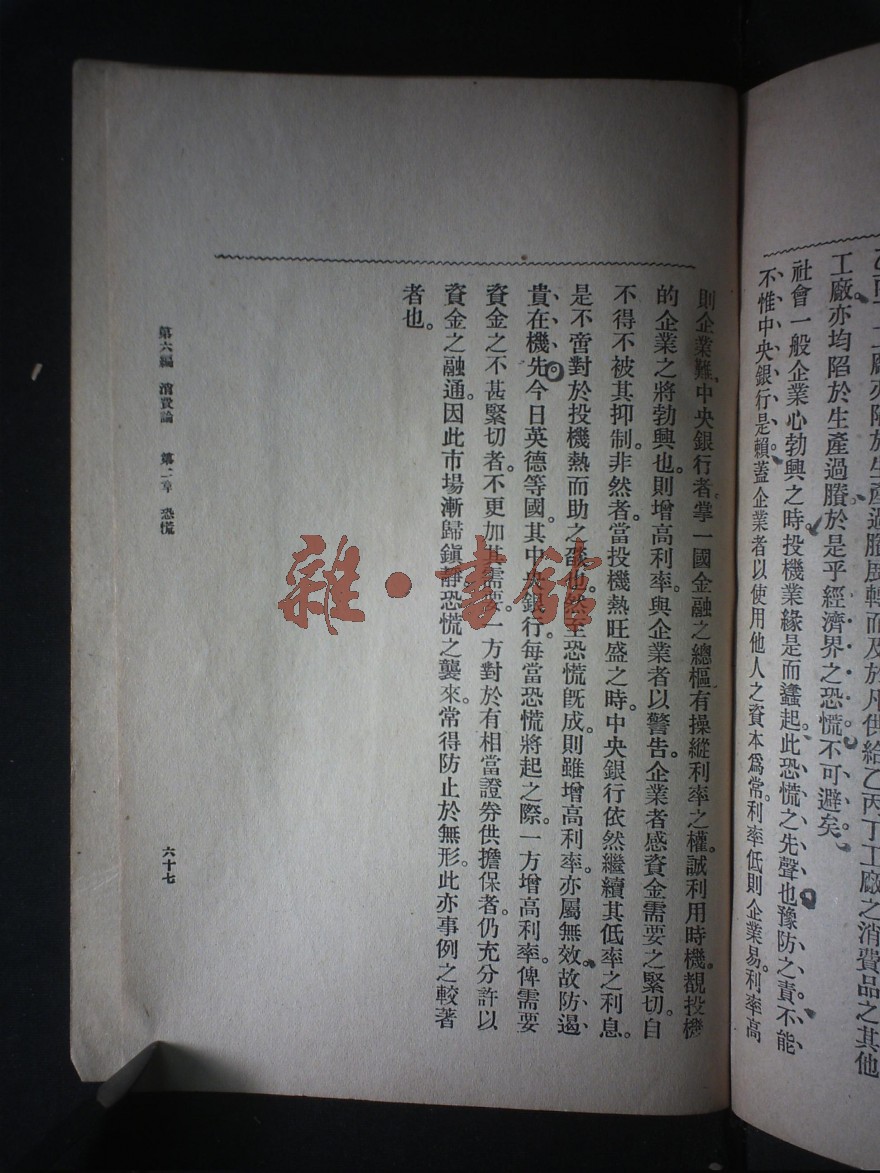 工廠亦均陷於生產過賸。於是乎經濟界之恐慌不可避矣。
社會一般企業心勃興之時。投機業緣是而蠭起。此恐慌之先聲也。豫防之責。不能
不惟中央銀行是賴。蓋企業者以使用他人之資本爲常。利率低則企業易。利率高
則企業難。中央銀行者。掌一國金融之總樞。有操縱利率之權。誠利用時機。覩投機
的企業之將勃興也。則增高利率。與企業者以警告。企業者感資金需要之緊切。自
不得不被其抑制。非然者。當投機熱旺盛之時。中央銀行依然繼續其低率之利息。
是不啻對於投機熱而助之燄也。然至恐慌旣成。則雖增高利率。亦屬無效。故防遏
貴在機先。今日英德等國。其中央銀行每當恐慌將起之際。一方增高利率。俾需要
資金之不甚緊切者。不更加其需要。一方對於有相當證券供擔保者。仍充分許以
資金之融通。因此市場漸歸鎭靜。恐慌之襲來。常得防止於無形。此亦事例之較著
者也。
第六編 消費論 第二章 恐慌
六十七
雜·書館